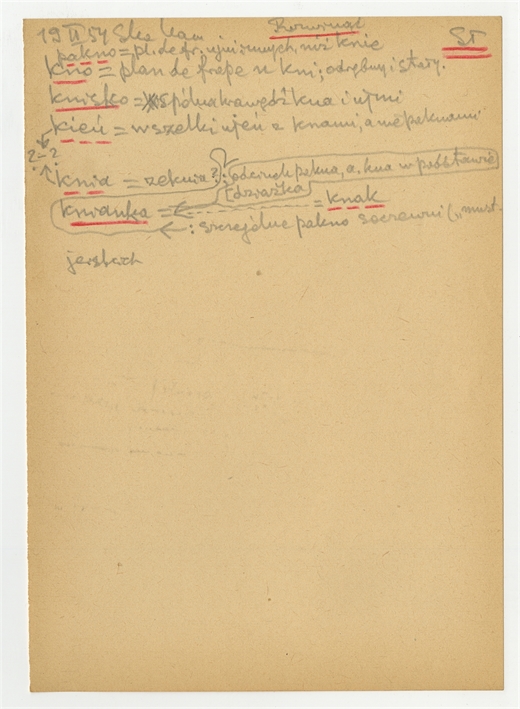 19 II 54 Ska Kam
ST
pakno = pl. de fr. ujni innych, niż knie
kno = plan de frape u kni; odrębny i stały.
knisko = spólna krawędź kna i ujni
kień = wszelki ujeń z knami, a nie paknami
? = ?
knia = zeknia? : odcinek pakna, a. kna w podstawie
[dziażka
knianka = = knak
: szczególne pakno soczewni („must-
jerzbach